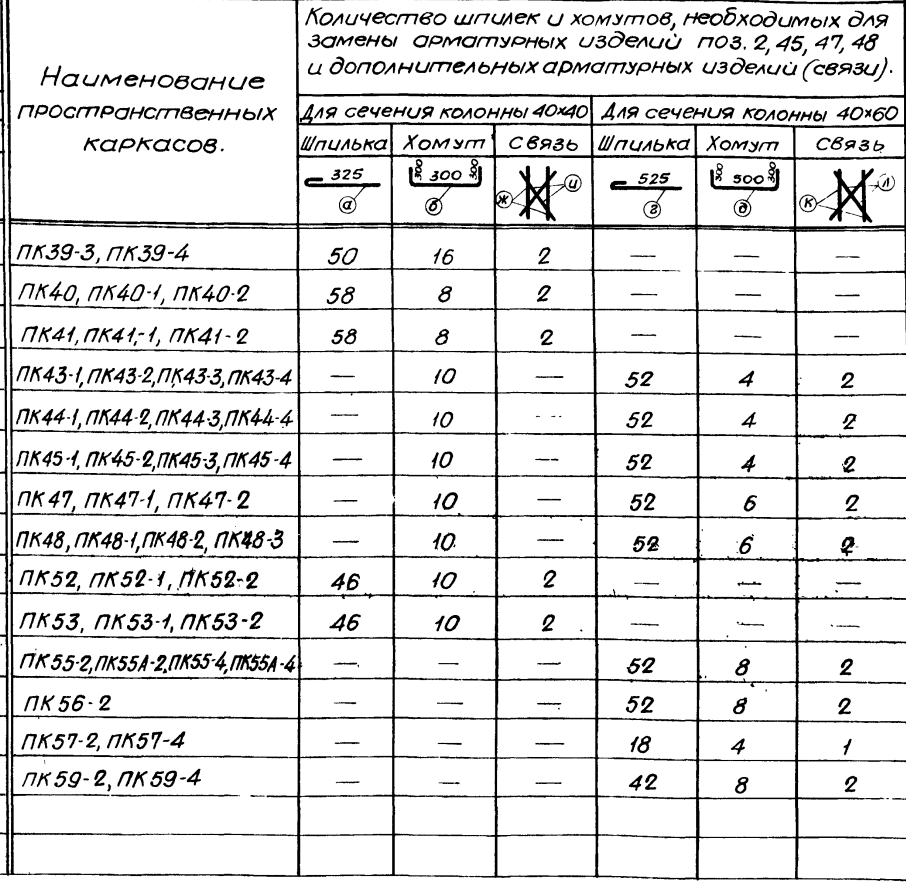 Наименование
пространственных
каркасов.
Количество шпилек и хомутов, необходимых для
замены арматурных изделий поз. 2, 45, 47, 48
и дополнительных арматурных изделий (связи).
Для сечения колонны 40×40 Для сечения колонны 40×60
Шпилька Хомут Связь Шпилька Хомут Связь
325 300 300 300 525 300 500 300
а б ж и г д к л
ПК39-3, ПК39-4 50 16 2 — — —
ПК40, ПК40-1, ПК40-2 58 8 2 — — —
ПК41, ПК41,-1, ПК41-2 58 8 2 — — —
ПК43-1, ПК43-2, ПК43-3, ПК43-4 — 10 — 52 4 2
ПК44-1, ПК44-2, ПК44-3, ПК44-4 — 10 — 52 4 2
ПК45-1, ПК45-2, ПК45-3, ПК45-4 — 10 — 52 4 2
ПК47, ПК47-1, ПК47-2 — 10 — 52 6 2
ПК48, ПК48-1, ПК48-2, ПК48-3 — 10 — 52 6 2
ПК52, ПК52-1, ПК52-2 46 10 2 — — —
ПК53, ПК53-1, ПК53-2 46 10 2 — — —
ПК55-2, ПК55А-2, ПК55-4, ПК55А-4 — — — 52 8 2
ПК56-2 — — — 52 8 2
ПК57-2, ПК57-4 — — — 18 4 1
ПК59-2, ПК59-4 — — — 42 8 2